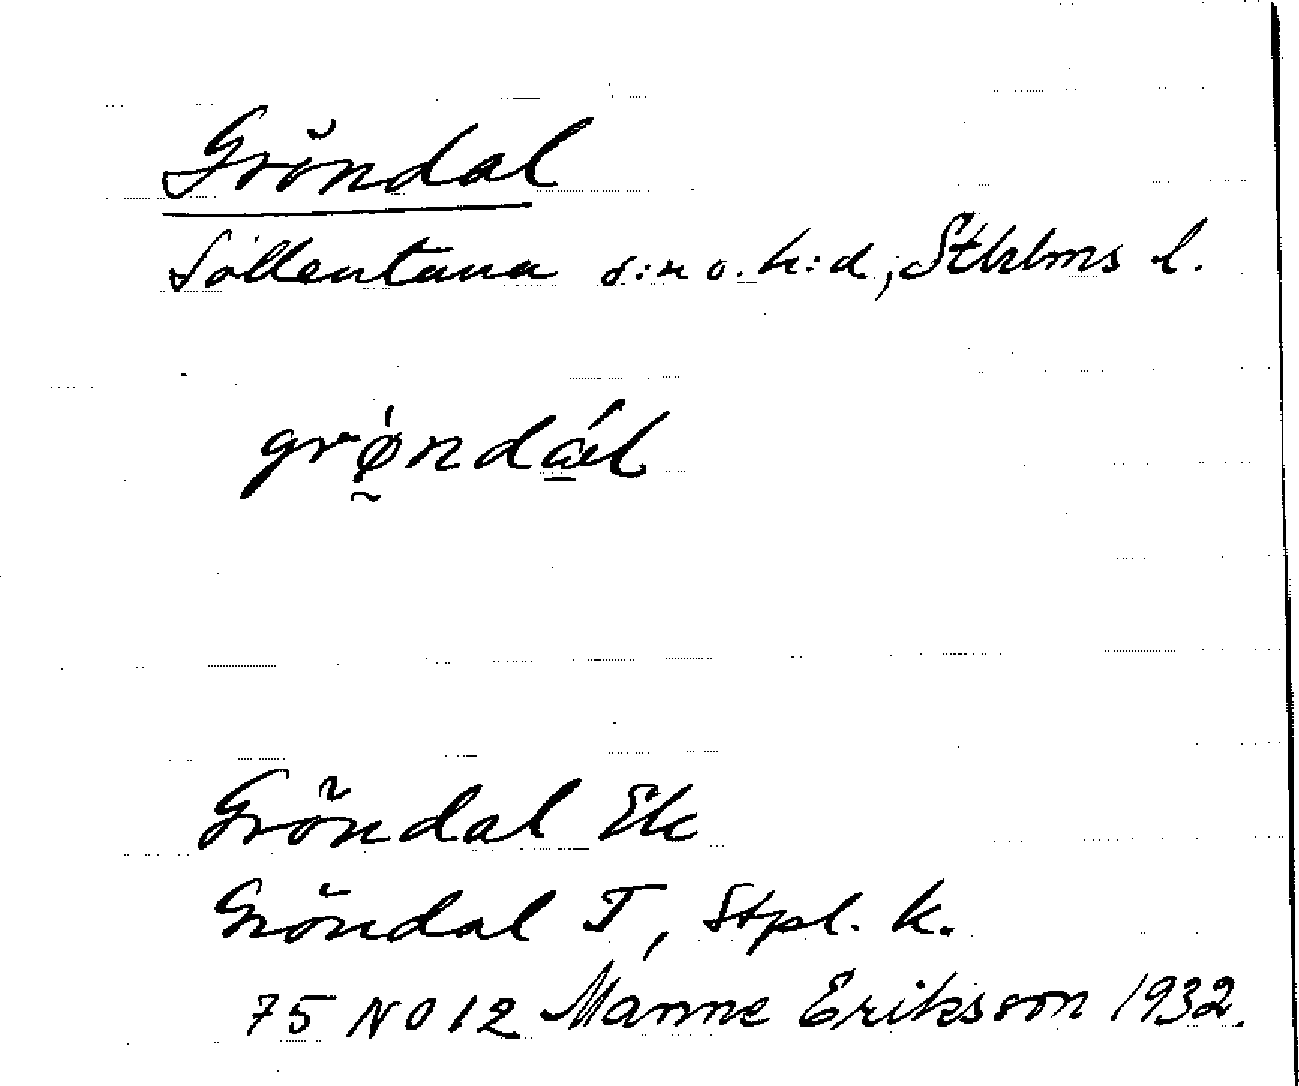 Gröndal
Sollentuna s:n o. h:d, Sthlms l.
grǿndál
Gröndal Ek
Gröndal T, Stpl. k.
75 NO 12 Manne Eriksson 1932.